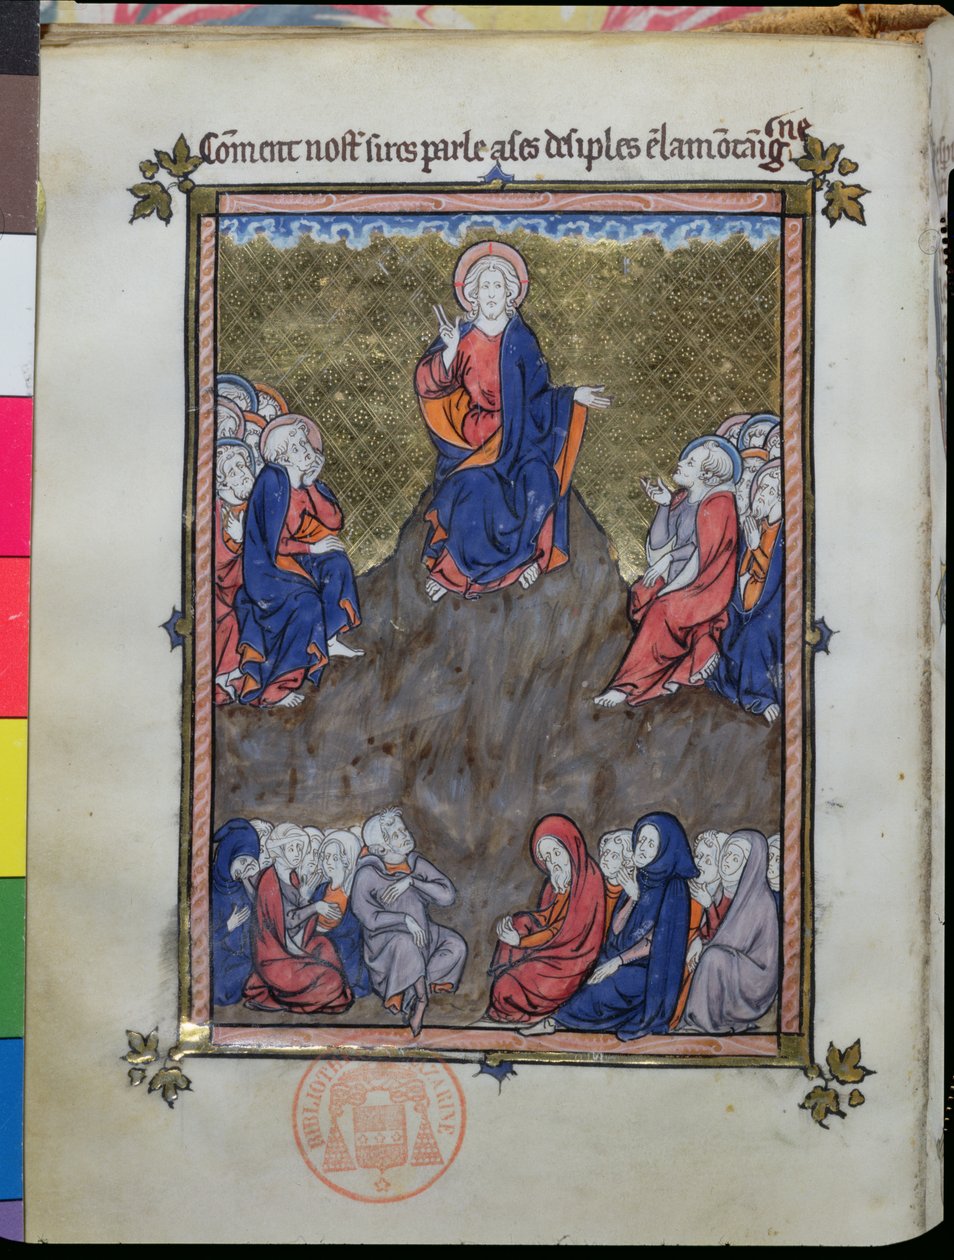 Cōment nostˢ sires parle a ses desiples ē la mōtaīgne
BIBLIOTH MAZARINE